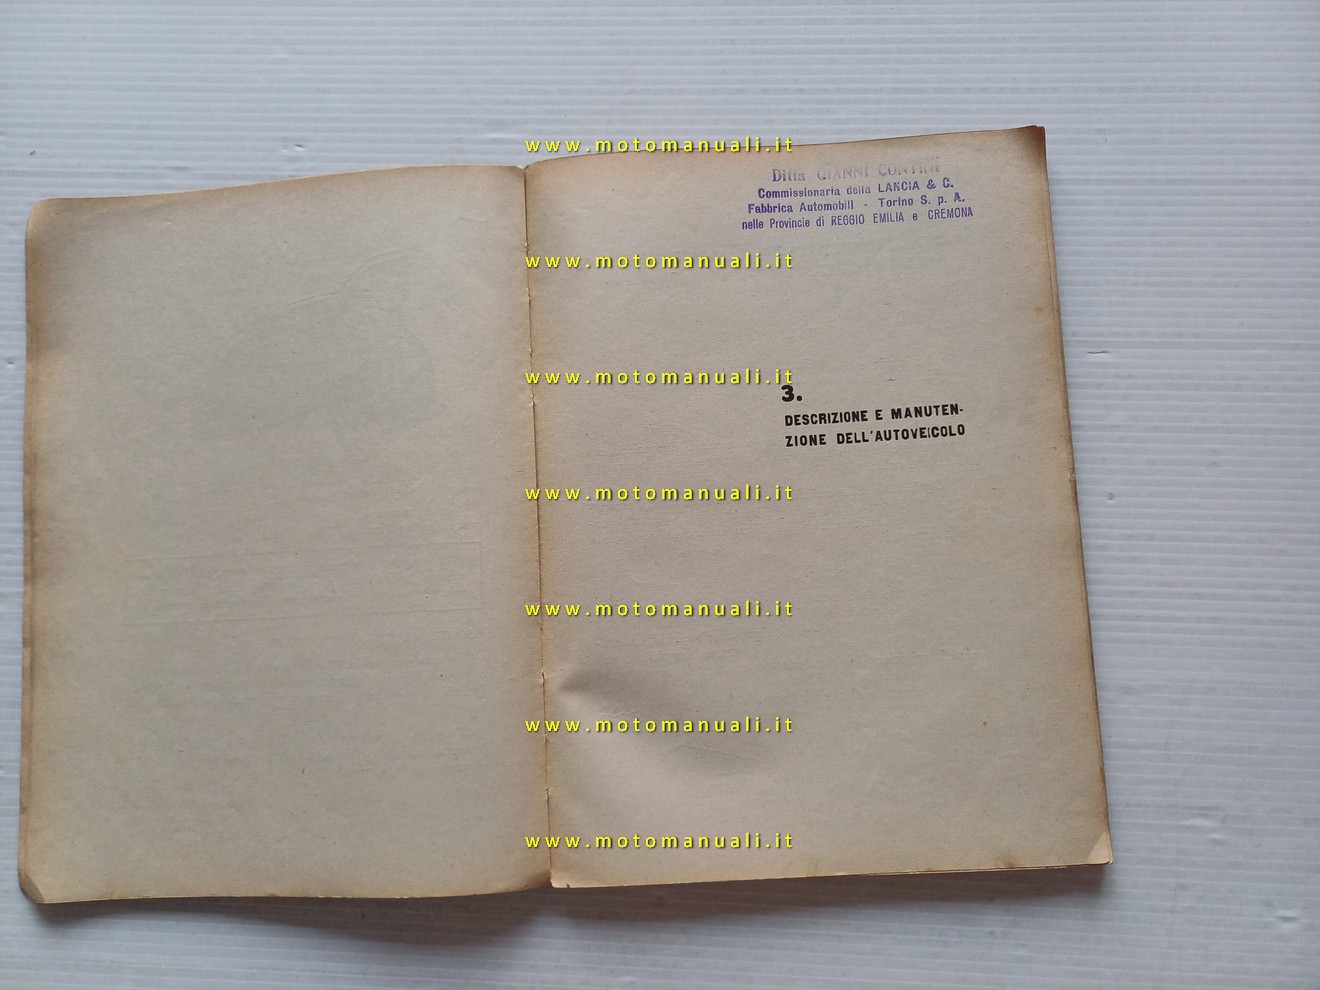 www.motomanuali.it
Ditta GIANNI CONTINI
Commissionaria della LANCIA & C.
Fabbrica Automobili - Torino S. p. A.
nelle Provincie di REGGIO EMILIA e CREMONA
www.motomanuali.it
www.motomanuali.it
3.
DESCRIZIONE E MANUTEN-
ZIONE DELL'AUTOVEICOLO
www.motomanuali.it
www.motomanuali.it
www.motomanuali.it
www.motomanuali.it